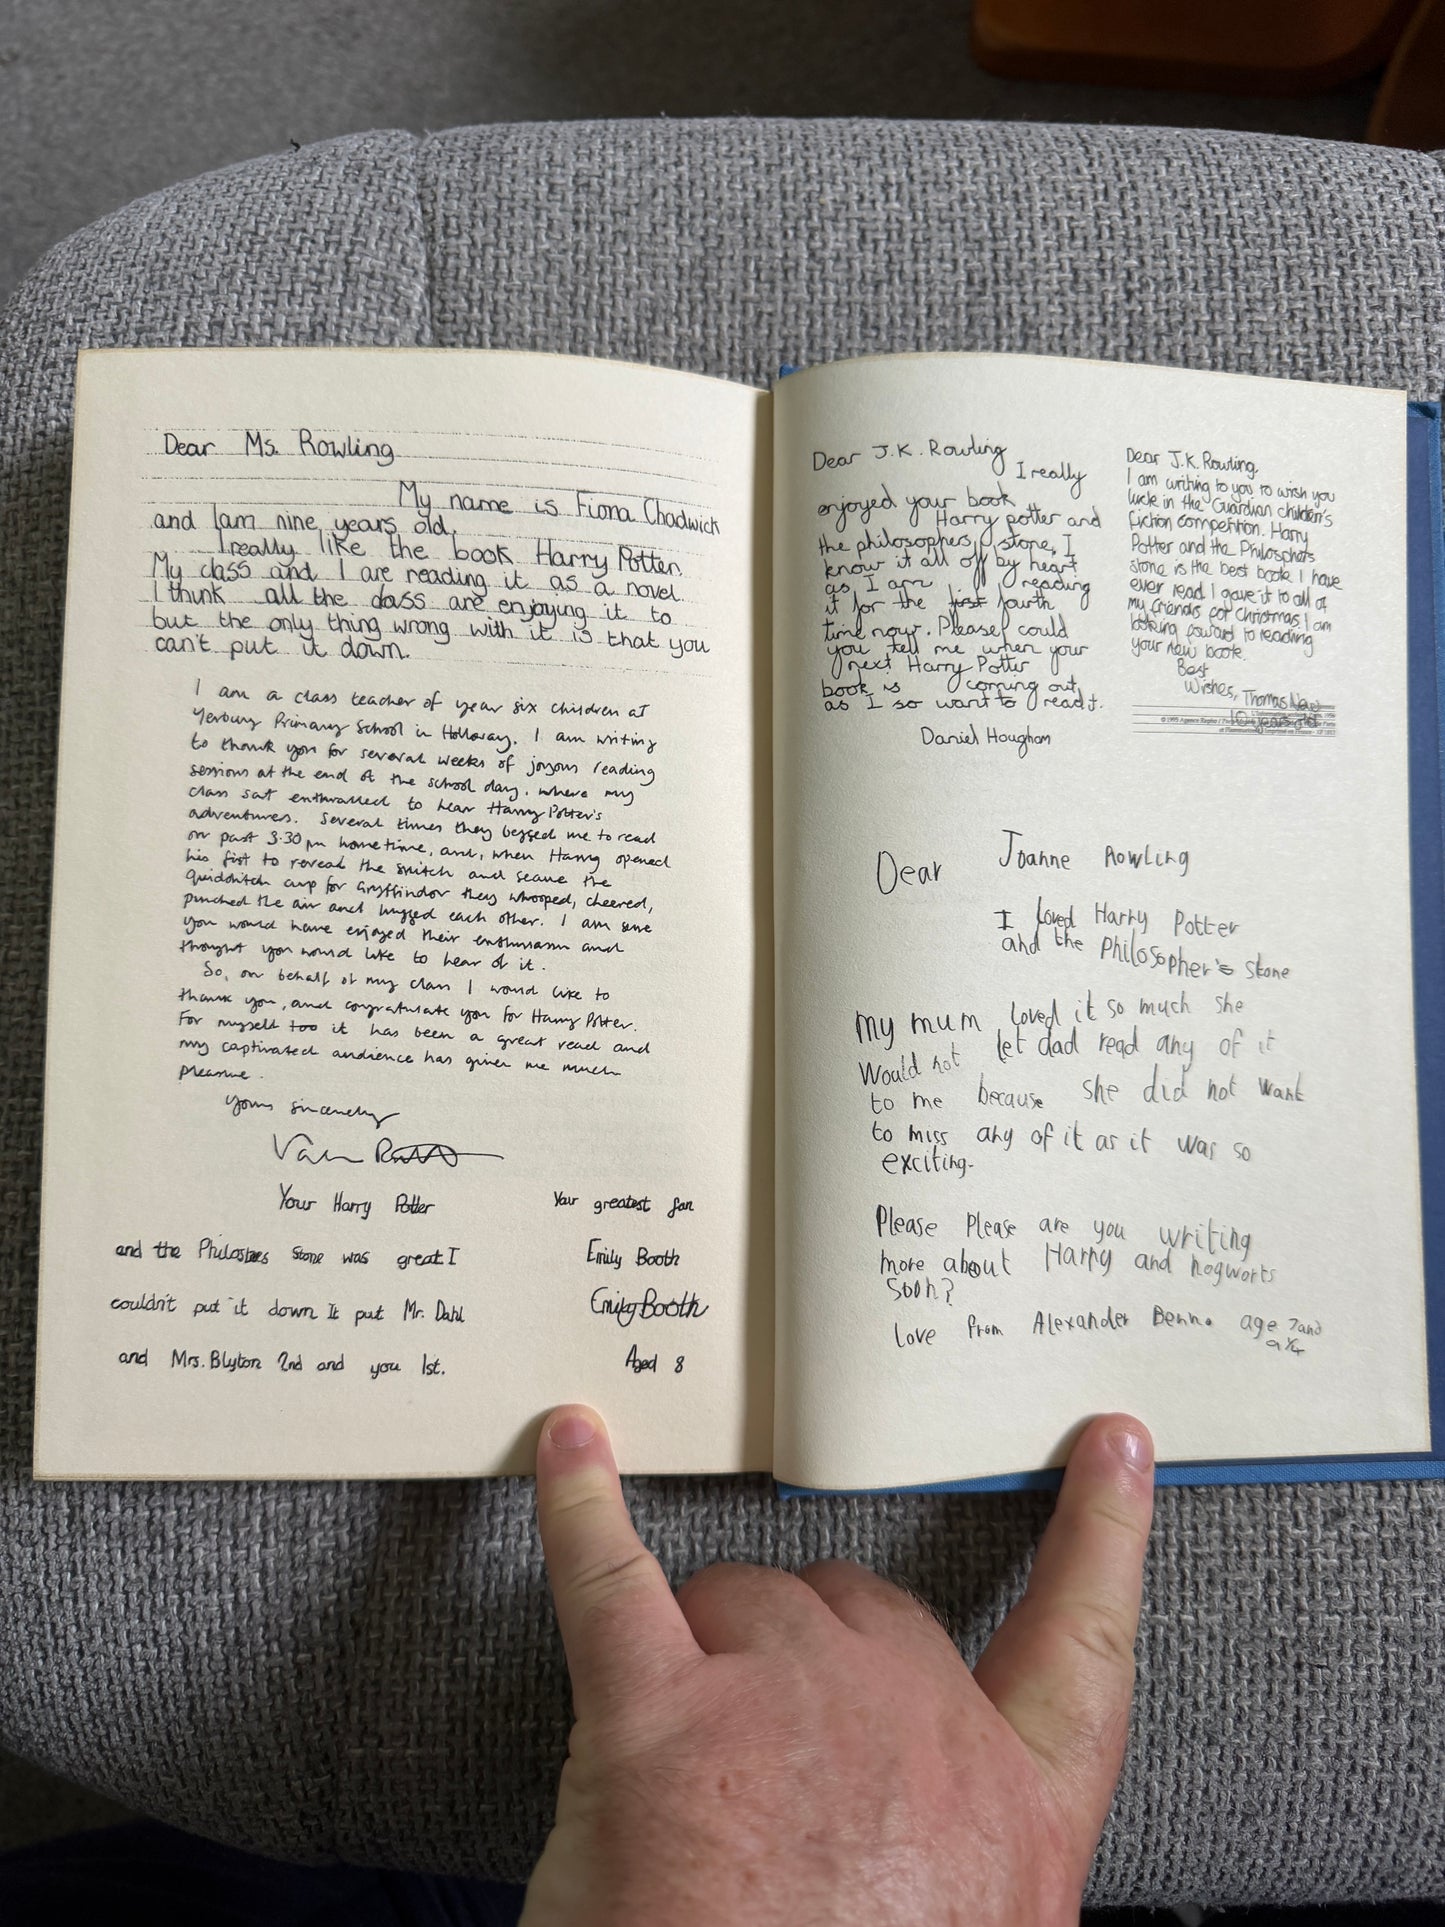 Dear Ms. Rowling
My name is Fiona Chadwick
and I am nine years old.
I really like the book Harry Potter.
My class and I are reading it as a novel.
I think all the class are enjoying it to
but the only thing wrong with it is that you
can't put it down.
I am a class teacher of year six children at
Yerbury Primary School in Holloway. I am writing
to thank you for several weeks of joyous reading
sessions at the end of the school day, where my
class sat enthralled to hear Harry Potter's
adventures. Several times they begged me to read
on past 3.30pm home time, and, when Harry opened
his fist to reveal the snitch and secure the
quidditch cup for Gryffindor they whooped, cheered,
punched the air and hugged each other. I am sure
you would have enjoyed their enthusiasm and
thought you would like to hear of it.
So, on behalf of my class I would like to
thank you, and congratulate you for Harry Potter.
For myself too it has been a great read and
my captivated audience has given me much
pleasure.
Yours sincerely
Your Harry Potter
and the stone was great I
couldn't put it down It put Mr. Dahl
and Mrs. Blyton 2nd and you 1st.
Your greatest fan
Emily Booth
Emily Booth
Aged 8
Dear J.K. Rowling
I really
enjoyed your book
Harry potter and
the philosophers stone, I
know it all off by heart
as I am reading
it for the first fourth
time now. Please could
you tell me when your
next Harry Potter
book is coming out,
as I so want to read it.
Daniel Hougham
Dear J.K. Rowling,
I am writing to you to wish you
luck in the Guardian children's
fiction competition. Harry
Potter and the Philosphers
stone is the best book I have
ever read I gave it to all of
my friends for Christmas, I am
looking foward to reading
your new book.
Best
Wishes, Thomas
10 years old
Dear Joanne Rowling
I loved Harry Potter
and the Philosopher's Stone
My mum loved it so much she
would not let dad read any of it
to me because she did not want
to miss any of it as it was so
exciting.
Please Please are you writing
more about Harry and hogworts
soon?
love from Alexander Benn. age 7 and
a 1/4